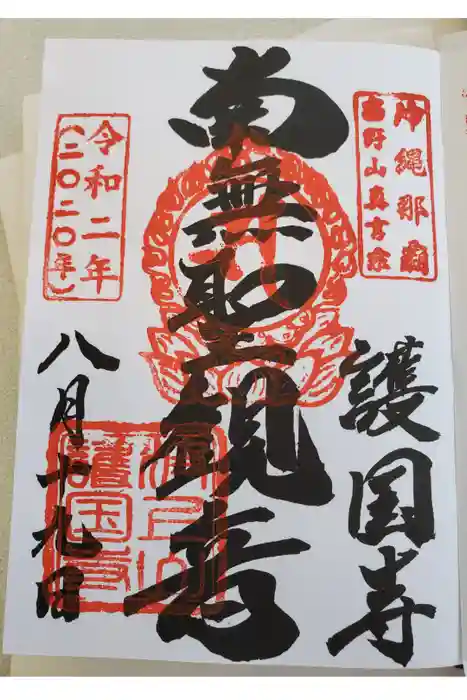 沖縄那覇
高野山真言宗
護国寺
南無聖観音
令和二年
(二〇二〇年)
八月十九日
波上山
護国寺